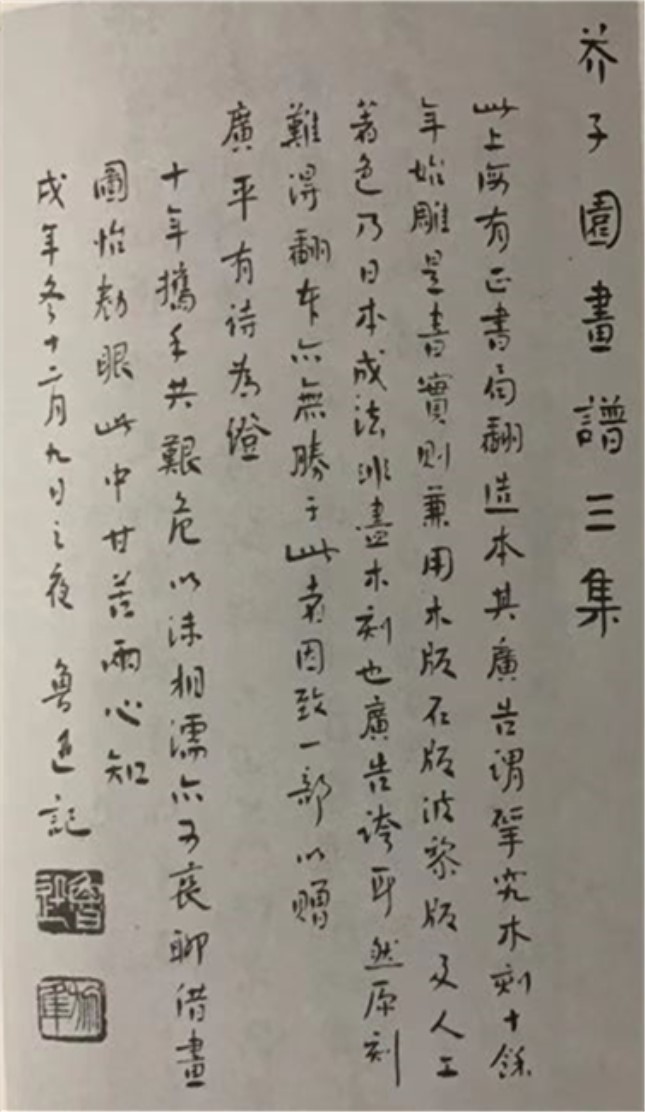 芥子園畫譜三集
此上海有正書局翻造本其廣告謂揅究木刻十餘
年始雕是書實則兼用木版石版波黎版及人工
著色乃日本成法非盡木刻也廣告誇耳然原刻
難得翻本亦無勝于此者因致一部以贈
廣平有詩為證
十年攜手共艱危以沫相濡亦可哀聊借畫
圖怡勌眼此中甘苦兩心知
戌年冬十二月九日之夜 魯迅記
魯迅
旅隼